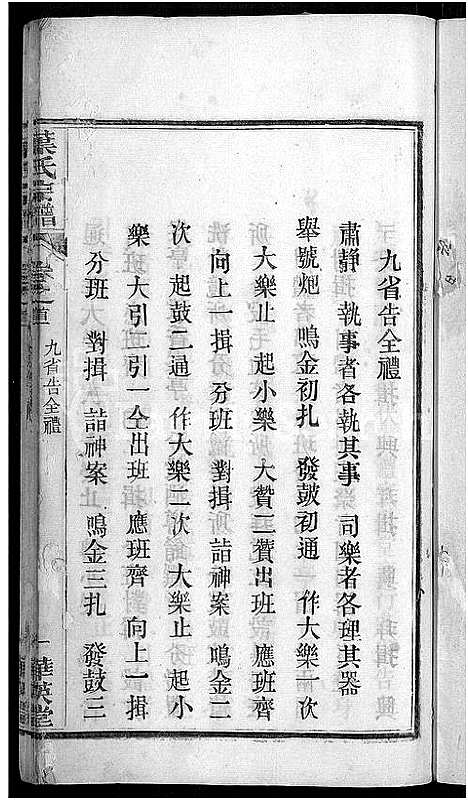 九省告全禮
肅静 執事者各執其事 司樂者各理其器
舉號炮 鳴金初扎 發鼓初通 作大樂一次
大樂止 起小樂 大贊二贊出班 應班齊
向上一揖 分班 對揖 詣神案 鳴金二
次 起鼓二通 作大樂二次 大樂止 起小
樂 大引二引一仝出班 應班齊 向上一揖
分班 對揖 詣神案 鳴金三扎 發鼓三
葉氏宗譜
卷之首
九省告全禮
一
華英堂